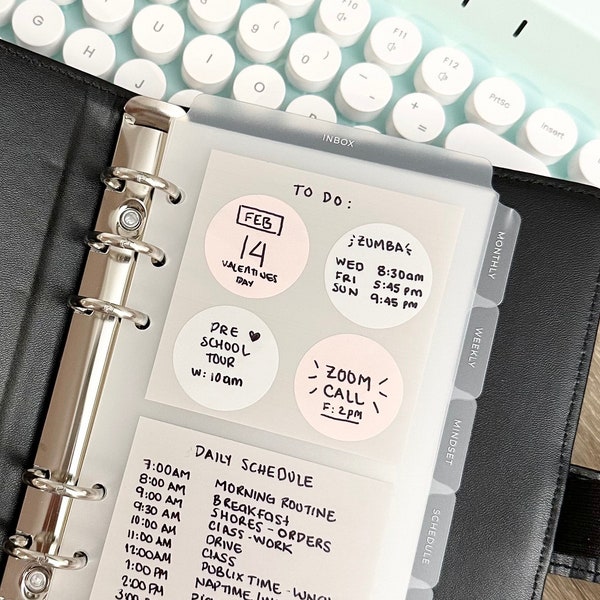 F10
F11
F12
Prtsc
Insert
G
Y
7
8
H
U
9
J
I
0
O
-
+
=
INBOX
TO DO:
FEB
14
VALENTINES
DAY
ZUMBA
WED 8:30am
FRI 5:45pm
SUN 9:45pm
PRE
SCHOOL
TOUR
W: 10am
ZOOM
CALL
F: 2pm
MONTHLY
WEEKLY
MINDSET
SCHEDULE
DAILY SCHEDULE
7:00AM MORNING ROUTINE
8:00 AM BREAKFAST
9:00 AM SHORES - ORDERS
9:30 AM CLASS - WORK
10:00 AM DRIVE
11:00 AM CLASS
12:00AM PUBLIX TIME - LUNCH
1:00 PM NAPTIME
2:00 PM
3:00